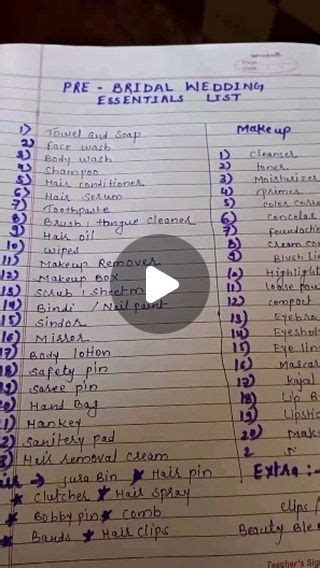 PRE - BRIDAL WEDDING
ESSENTIALS LIST
1) Towel and Soap
2) Face wash
3) Body wash
4) Shampoo
5) Hair conditioner
6) Hair Serum
7) Toothpaste
8) Brush, tongue cleaner
9) Hair oil
10) wipes
11) Makeup Remover
12) Makeup Box
13) Scrub, Sheet m
14) Bindi / Nail paint
15) Sindor
16) Mirror
17) Body lotion
18) Safety pin
19) Saree pin
Hand Bag
1) Hankey
2) Sanitery pad
3) Hair removal cream
→ Jura Bin ★ Hair pin
★ Clutcher ★ Hair Spray
★ Bobby pin ★ Comb
★ Bands ★ Hair clips
Makeup
1) Cleanser
2) toner
3) Moisturizer
4) Primer
5) color corre
6) Concelar
7) foundactio
8) cream con
9) Blush li
10) Highlight
11) loose pou
12) compact
13) Eyebro
14) Eyeshad
15) Eye lin
16) Mascar
17) Kajal
18) Lip B
19) Lipstic
20) Mak
2
Extra :-
clips
Beauty Ble
Teacher's Sig